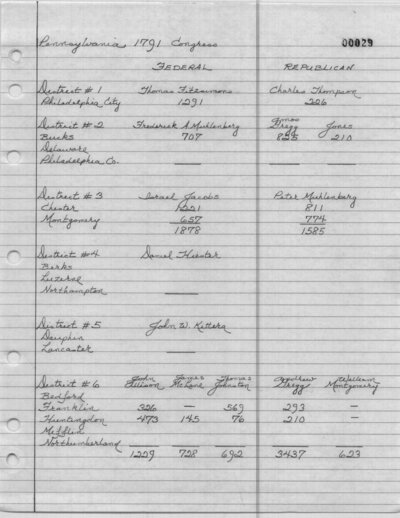 Pennsylvania 1791 Congress 00029
FEDERAL REPUBLICAN
District #1 Thomas Fitzsimons Charles Thompson
Philadelphia City 1291 226
District #2 Frederick A Muhlenberg Amos Gregg Jones
Bucks 707 825 210
Delaware
Philadelphia Co. — —
District #3 Israel Jacobs Peter Muhlenberg
Chester 1221 811
Montgomery 657 774
1878 1585
District #4 Daniel Hiester
Berks
Luzerne
Northampton —
District #5 John W. Kittera
Dauphin
Lancaster —
District #6 John Allison James McLene Thomas Johnston Andrew Gregg William Montgomery
Bedford
Franklin 326 — 569 293 —
Huntingdon 473 145 76 210 —
Mifflin
Northumberland
1229 728 692 3437 623